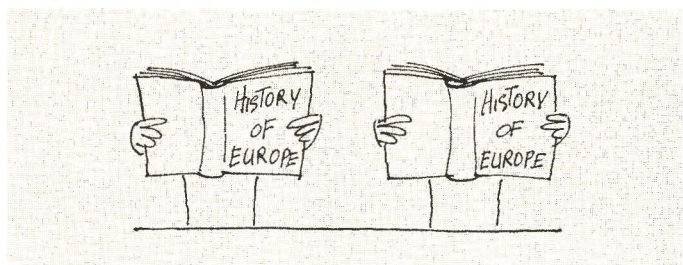 HISTORY
OF
EUROPE
HISTORY
OF
EUROPE